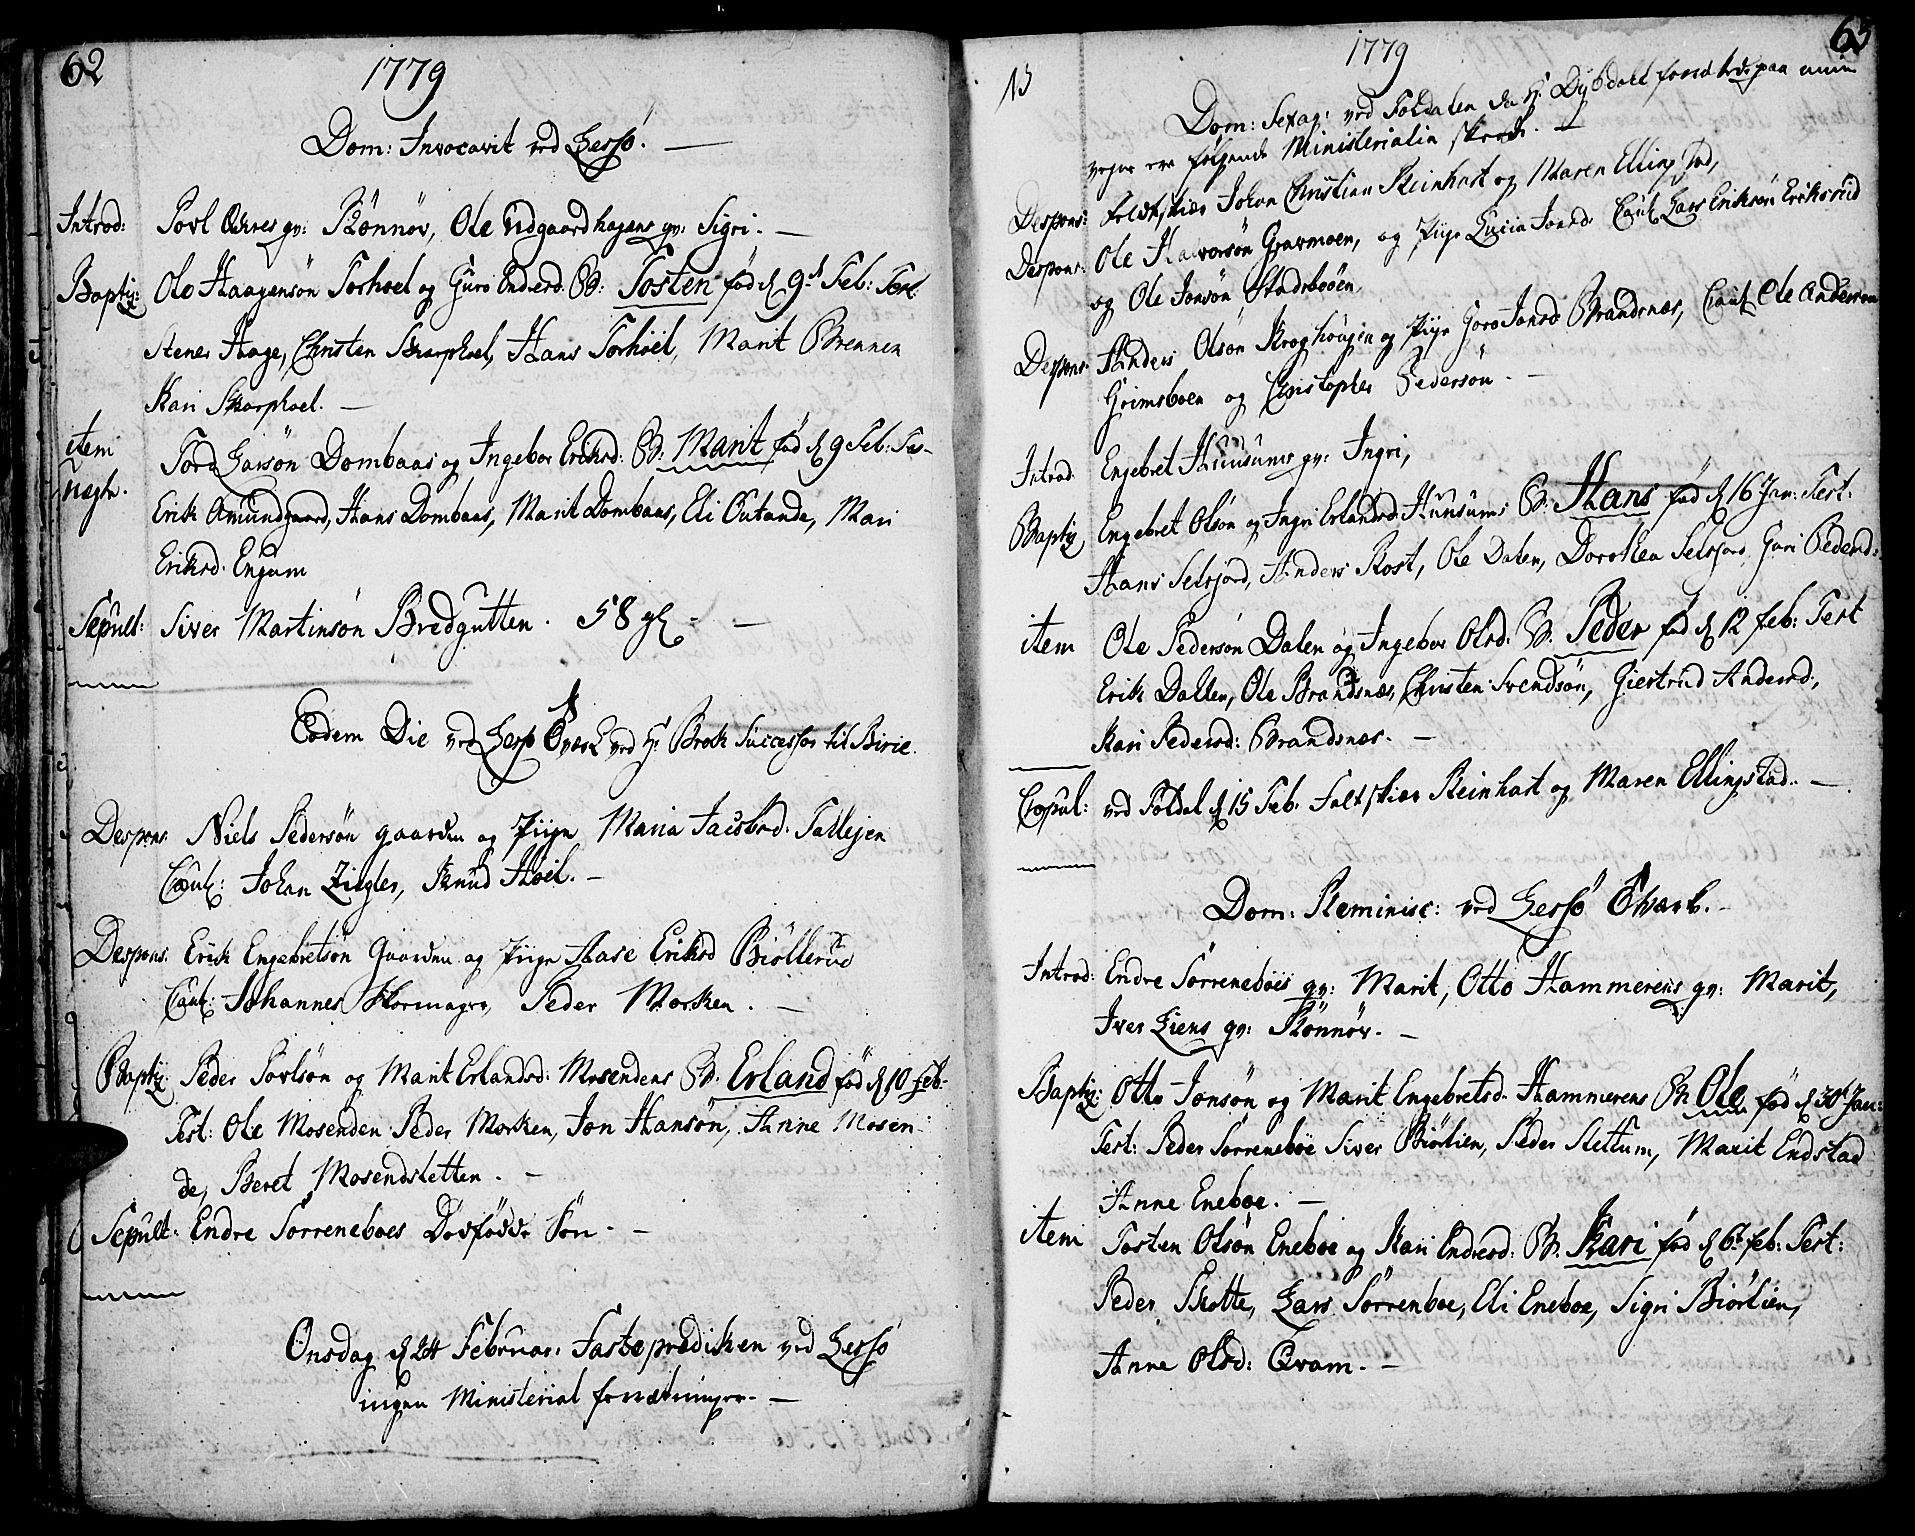 62
1779
Dom: Invocavit ved Lessö. —
Introd: Povl Ochres qv: Rönnöv, Ole Udgaardhagens qv: Sigri. —
Baptiz: Ole Haagensön Torhoel og Guro Endresd. B: Tosten fød d 9d Feb: Test
Stener Hage, Christen Skarphoel, Hans Torhoel, Marit Brennen
Kari Skarphoel. —
item Tord Larsön Dombaas og Ingebor Eriksd: B: Marit fød d 9 Feb: Tes-
Erik Amundgaard, Hans Dombaas, Marit Dombaas, Eli Outande, Mari
Eriksd. Engum
Sepult: Siver Martinsön Bredgutten. 58 —
Eodem Die ved Lessö Verk ved Hr Brok Successor til Birie.
Despons: Niels Pedersön gaarden og Piige Maria Jacobsd. Tallejen
Caut: Johan Ziegler, Knud Hoel. —
Despons: Erik Engebretsön Gaarden og Piige Aase Eriksd Biöllerud
Caut: Johannes Kormager, Peder Morken. —
Baptiz: Peder Povlsön og Marit Erlandsd: Mosendens B. Erland fød d 10 Feb-
Test: Ole Mosenden Peder Morken, Jon Hansön, Anne Mosen-
de, Beret Mosendsletten. —
Sepult: Endre Sorreneboes Dødfødde Sön. —
Onsdag d 24 Februar: Fasteprediken ved Lessö
ingen Ministerial forretninger. —
63
1779
Dom: Sexag: ved Foldalen da Hr Dybdall paa mine
vegne ere følgende Ministerialia skeede. —
Despons: Feldtskiær Johan Christian Reinhart og Maren Ellingstad,
Despons: Ole Halvorsön Gravmoen, og Piige Lucia Joensd. Caut Lars Eriksön Eriksrud
og Ole Jonsön Stadsboen
Despons: Anders Olsön Kroghougen og Piige Goro Jonsd Brandsnæs, Caut Ole Anderson
Grimsboen og Christopher Pedersön. —
Introd: Engebret Hunsunes qv: Ingri,
Baptiz Engebret Olsön og Ingri Erlandsd. Hunsunes B. Hans fød d 16 Jan: Test:
Hans Selsjord, Anders Rost, Ole Dalen, Dorothea Selsjord, Gori Pedersd:
item Ole Pedersön Dalen og Ingebor Olsd: B. Peder fød d 12 feb: Test
Erik Dallen, Ole Brandsnæs, Christen Svendsön, Giertrud Andersd,
Kari Pedersd: Brandsnæs. —
Copul: ved Foldal d 15 Feb. Feltskiær Reinhart og Maren Ellingstad. —
Dom: Reminisc: ved Lessö Verk. —
Introd: Endre Sorreneboes qv: Marit, Otto Hammerens qv: Marit,
Iver Liens qv: Rönnöv. —
Baptiz: Otto Jonsön og Marit Engebretsd. Hammerens B. Ole fød d 30t Jan:
Test: Peder Sorreneboe Siver Biörlien, Peder Slettum, Marit Endstad
Anne Eneboe. —
item Tosten Olsön Eneboe og Kari Endresd: B. Kari fød d 6t feb: Test:
Peder Skotte, Lars Sorrenboe, Eli Eneboe, Sigri Biörlien,
Anne Olsd: Qvam. —